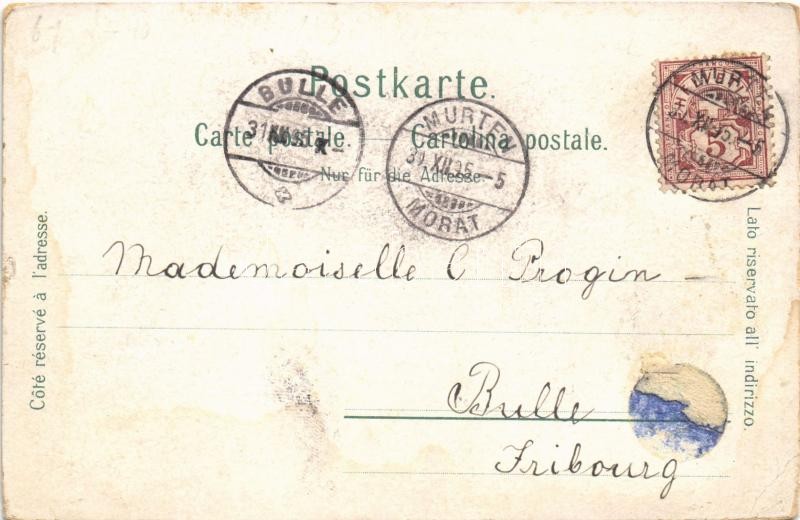 Postkarte.
Carte postale. Cartolina postale.
Nur für die Adresse.
BULLE
31 XII 95 X
MURTEN
31 XII 95 -5
MORAT
MURTEN
31 XII 95 -5
MORAT
5
Côté réservé à l'adresse.
Lato riservato all' indirizzo.
Mademoiselle C Progin
Bulle
Fribourg